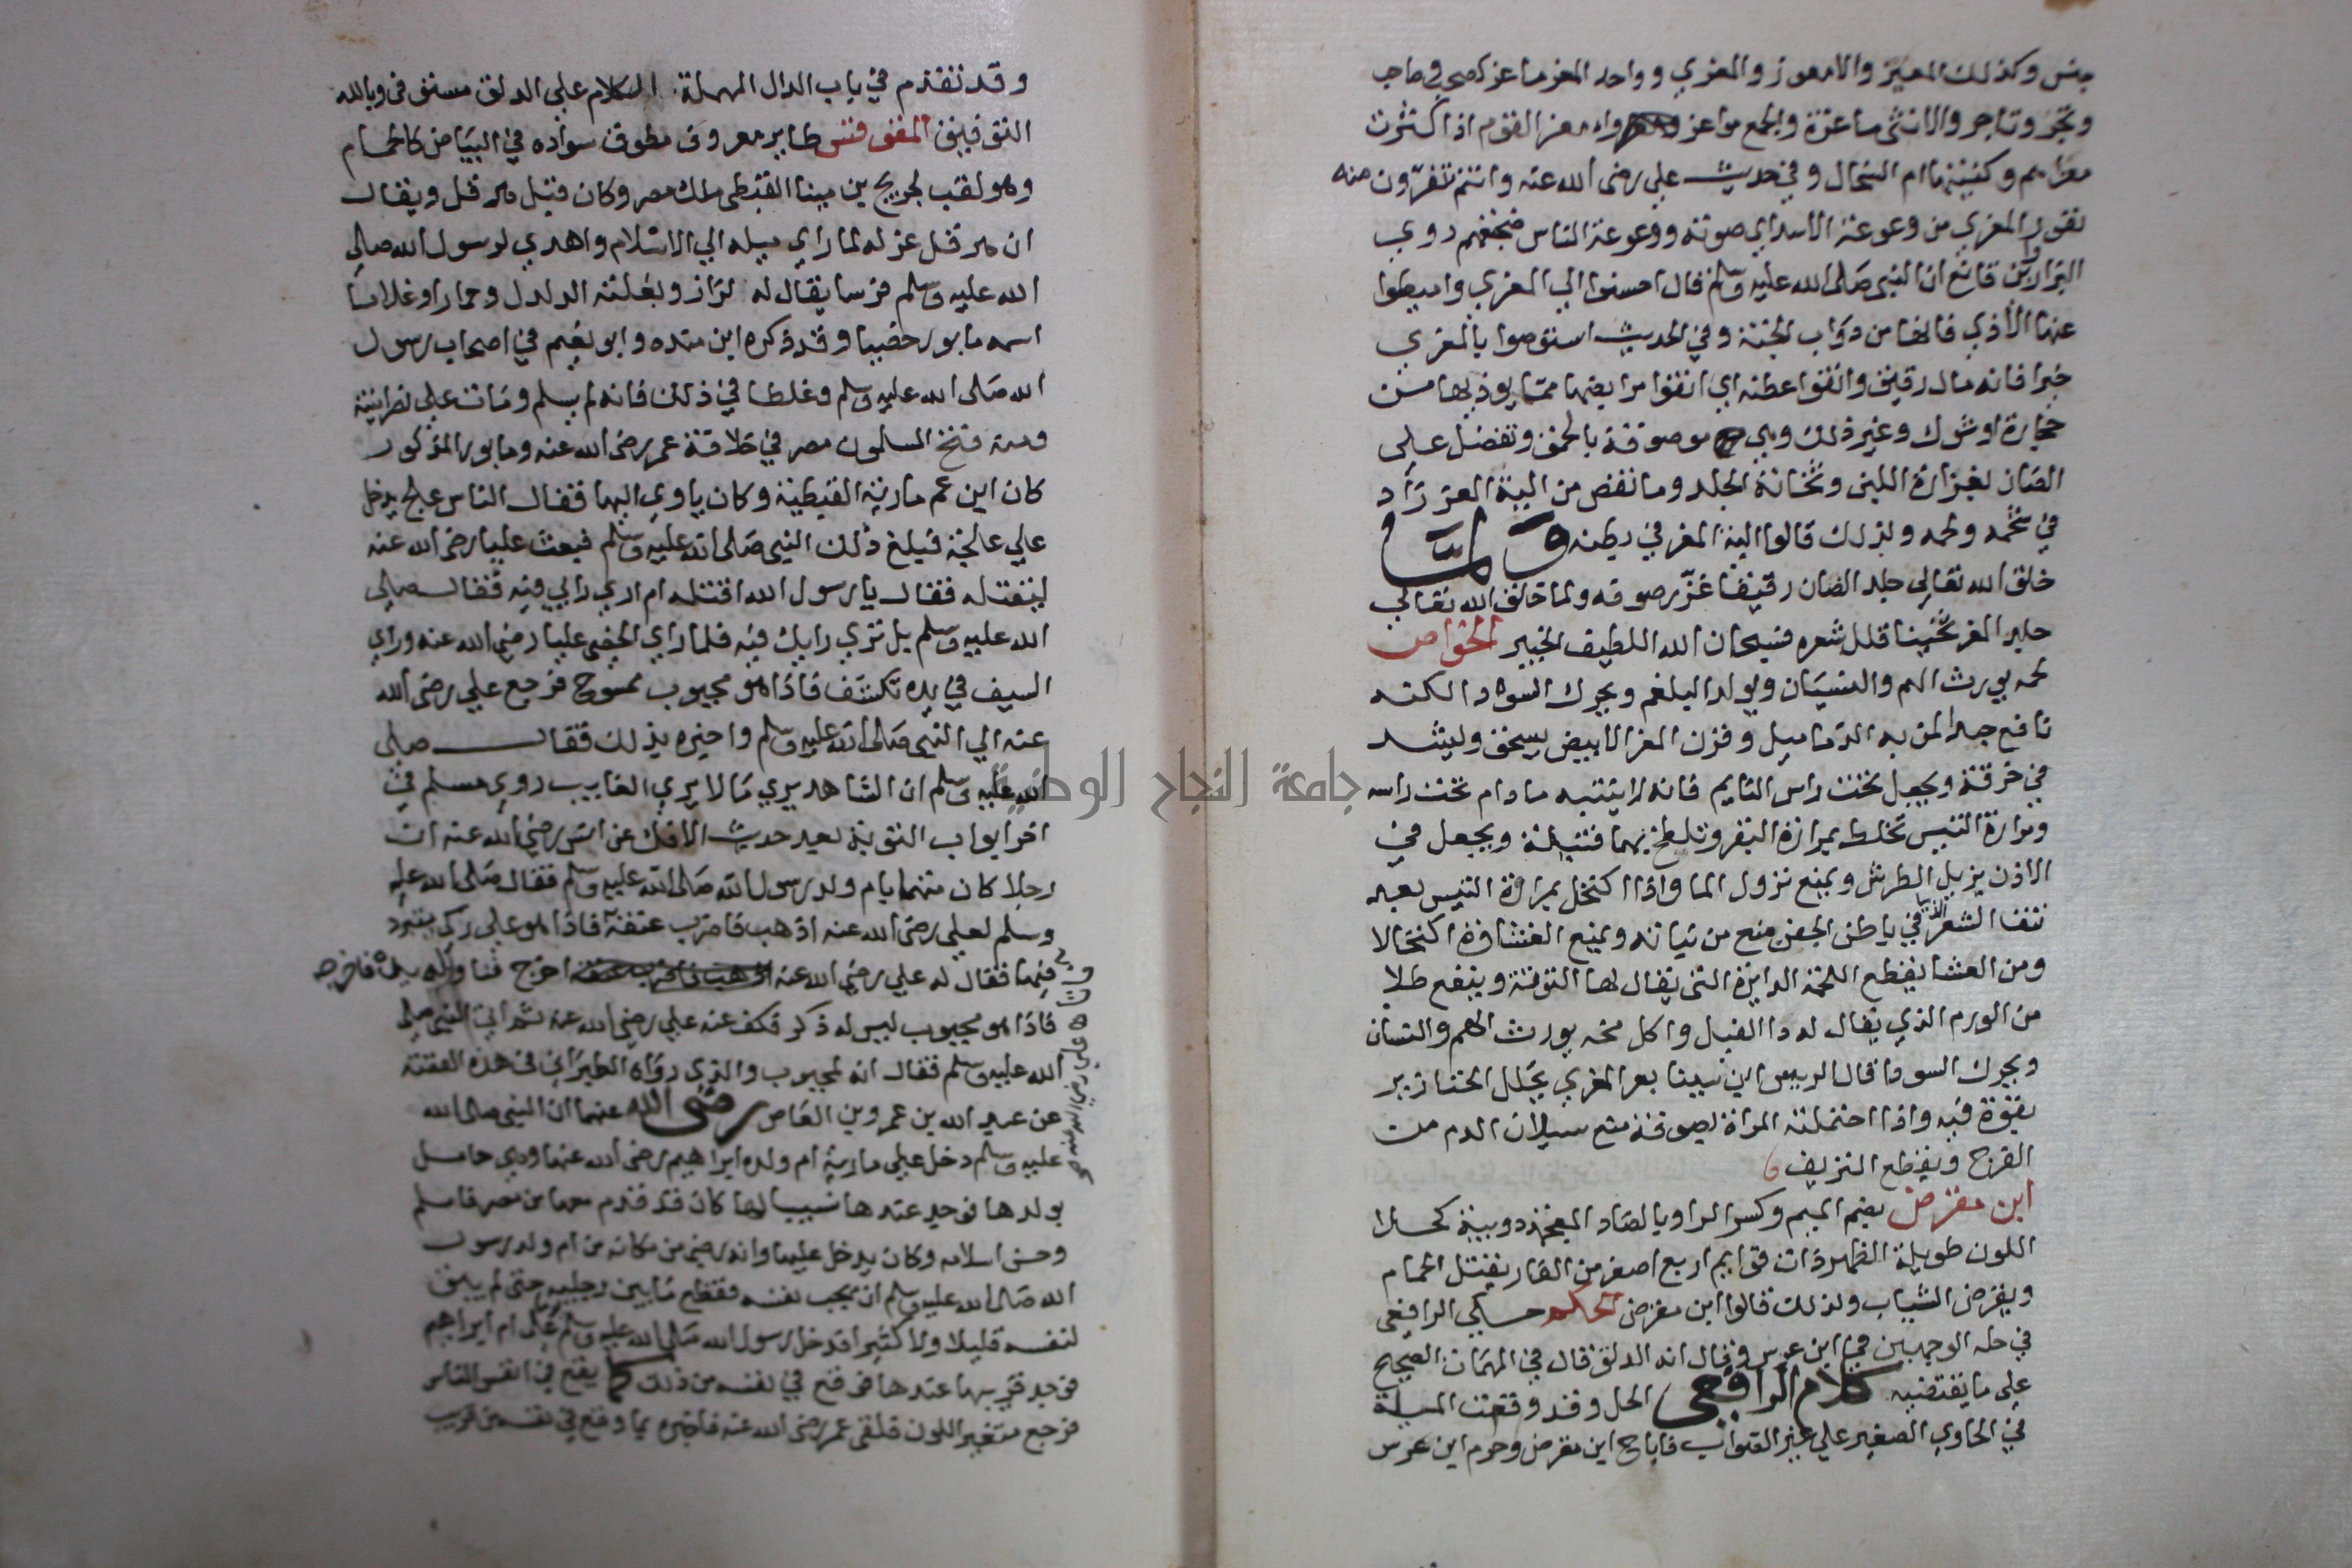 جنس وكذلك المعيز والامعوز والمعزي وواحد المعز ماعز كصحب وصاحب
وتجر وتاجر والانثى ماعزة والجمع مواعز وامعز القوم اذا كثرت
معزاهم وكنيتها ام السخال وفي حديث علي رضى الله عنه وانتم تنفرون منه
نفور المعزي من وعوعة الاسد اي صوته ووعوعة الناس ضجتهم روي
البزار وابن قانع ان النبي صلى الله عليه وسلم قال احسنوا الي المعزي واميطوا
عنها الاذي فانها من دواب الجنة وفي الحديث استوصوا بالمعزي
خيرا فانه مال رقيق وانقوا عطنه اي انقوا مرابضها مما يوذيها من
حجارة او شوك وغير ذلك وهي موصوفة بالحمق وتفضل علي
الضان بغزارة اللبن وثخانة الجلد وما نقص من الية المعز زاد
في شحمه ولحمه ولذلك قالوا الية المعز في بطنه ولما
خلق الله تعالي جلد الضان رقيقا غزر صوفه ولما خلق الله تعالي
جلد المعز ثخينا قلل شعره فسبحان الله اللطيف الخبير الخواص
لحمه يورث الهم والنسيان ويولد البلغم ويحرك السوداء لكنه
نافع جدا لمن به الدماميل وقرن المعز الابيض يسحق ويشد
في خرقة ويجعل تحت راس النايم فانه لا ينتبه ما دام تحت راسه
ومرارة التيس تخلط بمرارة البقر وتلطخ بهما فتيلة ويجعل في
الاذن يزيل الطرش ويمنع نزول الما واذا اكتحل بمرارة التيس بعد
نتف الشعر الذي في باطن الجفن منع من نباته ويمنع الغشاوة اكتحالا
ومن العشا يقطع اللحمة الدايرة التى يقال لها التوتة وينفع طلا
من الورم الذي يقال له دا الفيل واكل مخه يورث الهم والنسيان
ويحرك السودا قال الرييس ابن سينا بعر المعزي يحلل الخنازير
بقوة فيه واذا احتملته المراة بصوفة منع سيلان الدم من
الفرج ويقطع النزيف
ابن مقرض بضم الميم وكسر الرا وبالضاد المعجمة دويبة كحلا
اللون طويلة الظهر ذات قوايم اربع اصغر من الفار يقتل الحمام
ويقرض الثياب ولذلك قالوا ابن مقرض الحكم حكي الرافعي
في حله الوجهين في ابن عرس وقال انه الدلق قال في المهمات الصحيح
على ما يقتضيه كلام الرافعي الحل وقد وقعت المسيلة
في الحاوي الصغير علي غير الصواب فاباح ابن مقرض وحرم ابن عرس
وقد تقدم في باب الدال المهملة الكلام علي الدلق مستوفى وبالله
التوفيق المقوقس طاير معروف مطوق سواده في البياض كالحمام
وهو لقب لجريج بن مينا القبطى ملك مصر وكان قبل هرقل ويقال
ان هرقل عزله لما راي ميله الي الاسلام واهدي لرسول الله صلي
الله عليه وسلم فرسا يقال له لزاز وبغلته الدلدل وحمارا وغلاما
اسمه مابور خصيا وقد ذكره ابن منده وابو نعيم في اصحاب رسول
الله صلى الله عليه وسلم وغلطا في ذلك فانه لم يسلم ومات علي نصرانيته
ومنه فتح المسلمون مصر في خلافة عمر رضى الله عنه ومابور المذكور
كان ابن عم مارية القبطية وكان ياوي اليها فقال الناس علج يدخل
علي علجة فبلغ ذلك النبي صلى الله عليه وسلم فبعث عليا رضى الله عنه
ليقتله فقال يا رسول الله اقتله ام اري رايي فيه فقال صلي
الله عليه وسلم بل تري رايك فيه فلما راي الخصى عليا رضى الله عنه وراي
السيف في يده تكشف فاذا هو مجبوب ممسوح فرجع علي رضى الله
عنه الي النبي صلى الله عليه وسلم واخبره بذلك فقال صلى
الله عليه وسلم ان الشاهد يري ما لا يري الغايب روي مسلم في
اخر ابواب التوبة بعد حديث الافك عن انس رضى الله عنه ان
رجلا كان متهما بام ولد رسول الله صلى الله عليه وسلم فقال صلى الله عليه
وسلم لعلي رضى الله عنه اذهب فاضرب عنقه فاذا هو على ركي يتبرد
فيها فقال له علي رضى الله عنه اخرج فناوله يده فاخرجه
فاذا هو مجبوب ليس له ذكر فكف عنه علي رضى الله عنه ثم اتي النبي صلى
الله عليه وسلم فقال انه لمجبوب والذي رواه الطبراني في هذه القصة
عن عبد الله بن عمرو بن العاص رضى الله عنهما ان النبي صلى الله
عليه وسلم دخل علي مارية ام ولده ابراهيم رضى الله عنها وهي حامل
بولدها فوجد عندها نسيبا لها كان قد قدم معها من مصر فاسلم
وحسن اسلامه وكان يدخل عليها وانه رضى من مكانه من ام ولد رسول
الله صلى الله عليه وسلم ان يجب نفسه فقطع ما بين رجليه حتى لم يبق
لنفسه قليلا ولا كثيرا فدخل رسول الله صلى الله عليه وسلم على ام ابراهيم
فوجد قريبها عندها فوقع في نفسه من ذلك كما يقع في انفس الناس
فرجع متغير اللون فلقى عمر رضى الله عنه فاخبره بما وقع في نفسه من قريب
جامعة النجاح الوطنية